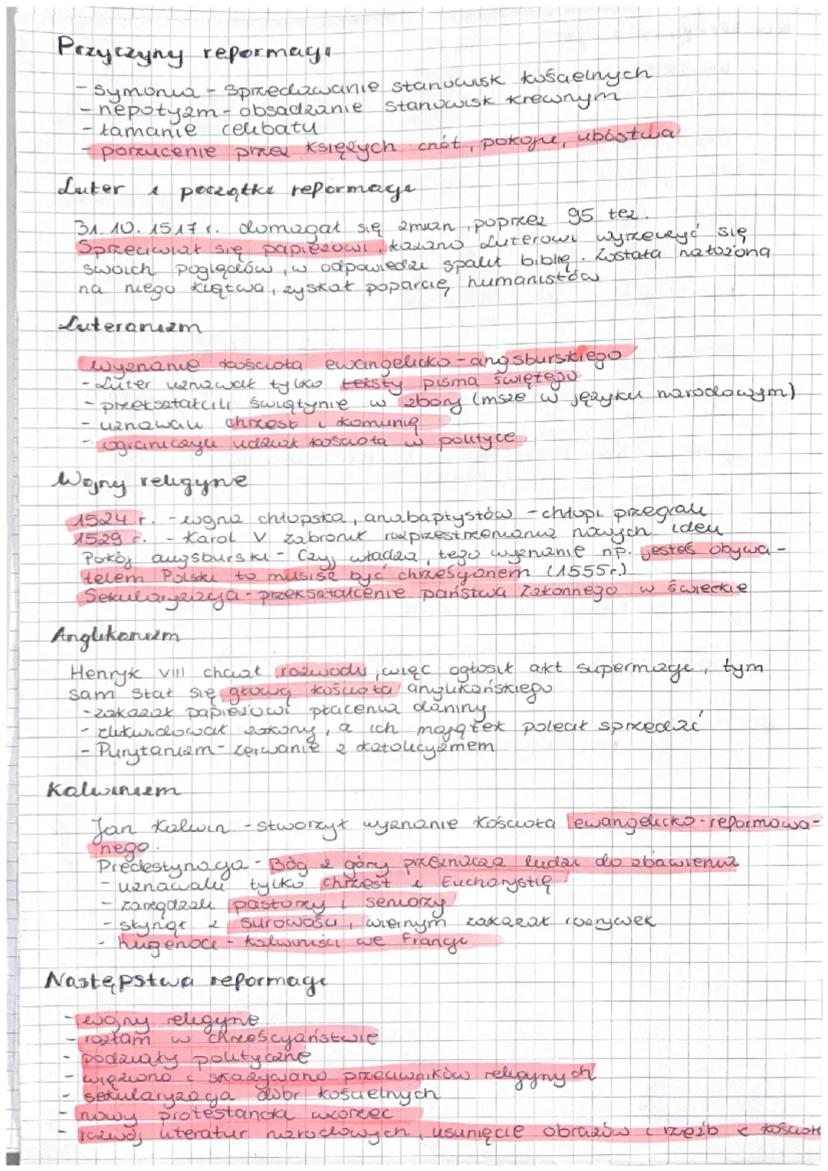 Przyczyny reformacji
- symonia - sprzedawanie stanowisk kościelnych
- nepotyzm - obsadzanie stanowisk krewnym
- łamanie celibatu
- porzucenie przez księży cnót, pokoju, ubóstwa
Luter i początki reformacji
31.10.1517 r. domagał się zmian poprzez 95 tez.
Sprzeciwiał się papieżowi, kazano Luterowi wyrzeczyć się
swoich poglądów, w odpowiedzi spalił biblię. Została nałożona
na niego klątwa, zyskał poparcie humanistów
Luteranizm
Wyznanie kościoła ewangelicko-angsburskiego
- Luter uznawał tylko teksty pisma świętego
- przekształcili świątynie w zbory (msze w języku narodowym)
- uznawali chrzest i komunię
- ograniczyli udział kościoła w polityce
Wojny religijne
1524 r. - wojna chłopska, anabaptystów - chłopi przegrali
1529 r. - Karol V zabronił rozprzestrzeniania nowych idei
Pokój augsburski - Czyj władza, tego wyznanie np. jesteś obywa-
telem Polski to musisz być chrześcijanem (1555r.)
Sekularyzacja - przekształcenie państwa Zakonnego w świeckie
Anglikanizm
Henryk VIII chciał rozwodu, więc ogłosił akt supermacji, tym
sam stał się głową kościoła anglikańskiego
- zakazał papieżowi płacenia daniny
- zlikwidował zakony, a ich majątek polecił sprzedać
- Purytanizm - zerwanie z katolicyzmem
Kalwinizm
Jan Kalwin - stworzył wyznanie Kościoła ewangelicko-reformowa-
nego.
Predestynacja - Bóg z góry przeznacza ludzi do zbawienia
- uznawali tylko chrzest i Eucharystię
- zarządzali pastorzy i seniorzy
- słynął z surowości, wiernym zakazał rozrywek
- hugenoci - kalwiniści we Francji
Następstwa reformacji
- wojny religijne
- rozłam w chrześcijaństwie
- podziały polityczne
- więziono i skazywano przeciwników religijnych
- sekularyzacja dóbr kościelnych
- nowy protestancki wzorzec
- rozwój literatur narodowych, usunięcie obrazów i rzeźb z kościoł